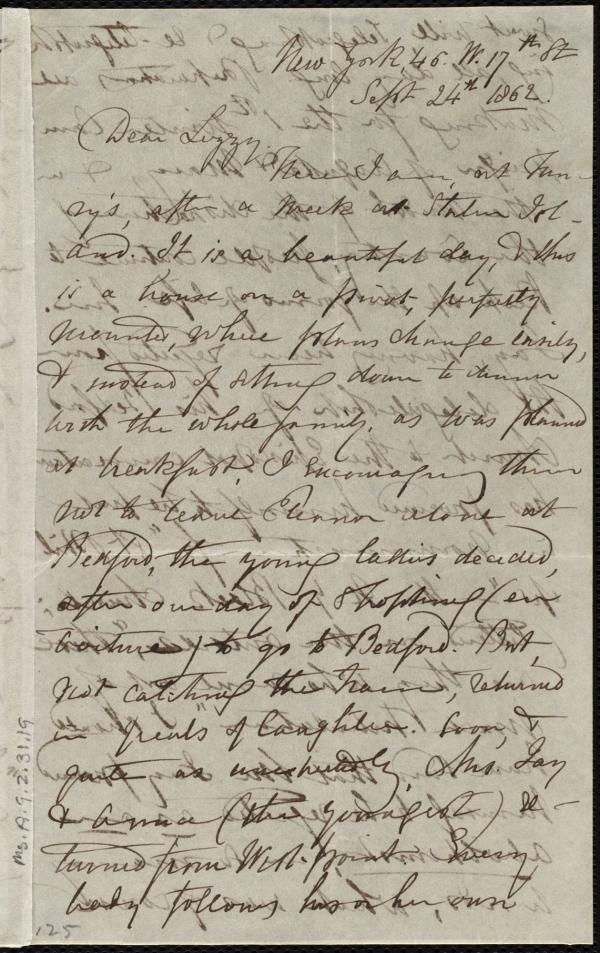 New York, 46. W. 17th St
Sept 24th 1862.
Dear Lizzy:
Here I am, at Fan-
ny's, after a week at Staten Isl-
and. It is a beautiful day, & this
is a house on a pivot, perfectly
mounted, where plans change easily,
& instead of sitting down to dinner
with the whole family, as was planned
at breakfast, I encouraging them
not to leave Elenor alone at
Bedford, the young ladies decided,
after our day of shopping (en
voiture) to go to Bedford. But,
not catching the train, returned
in "peals" of laughter. Soon, &
quite as unexpectedly, Mrs. Jay
& Anna (the youngest) re-
turned from West-point. Every
body follows his or her, own
Ms. A. 9. 2. 31. 19
125